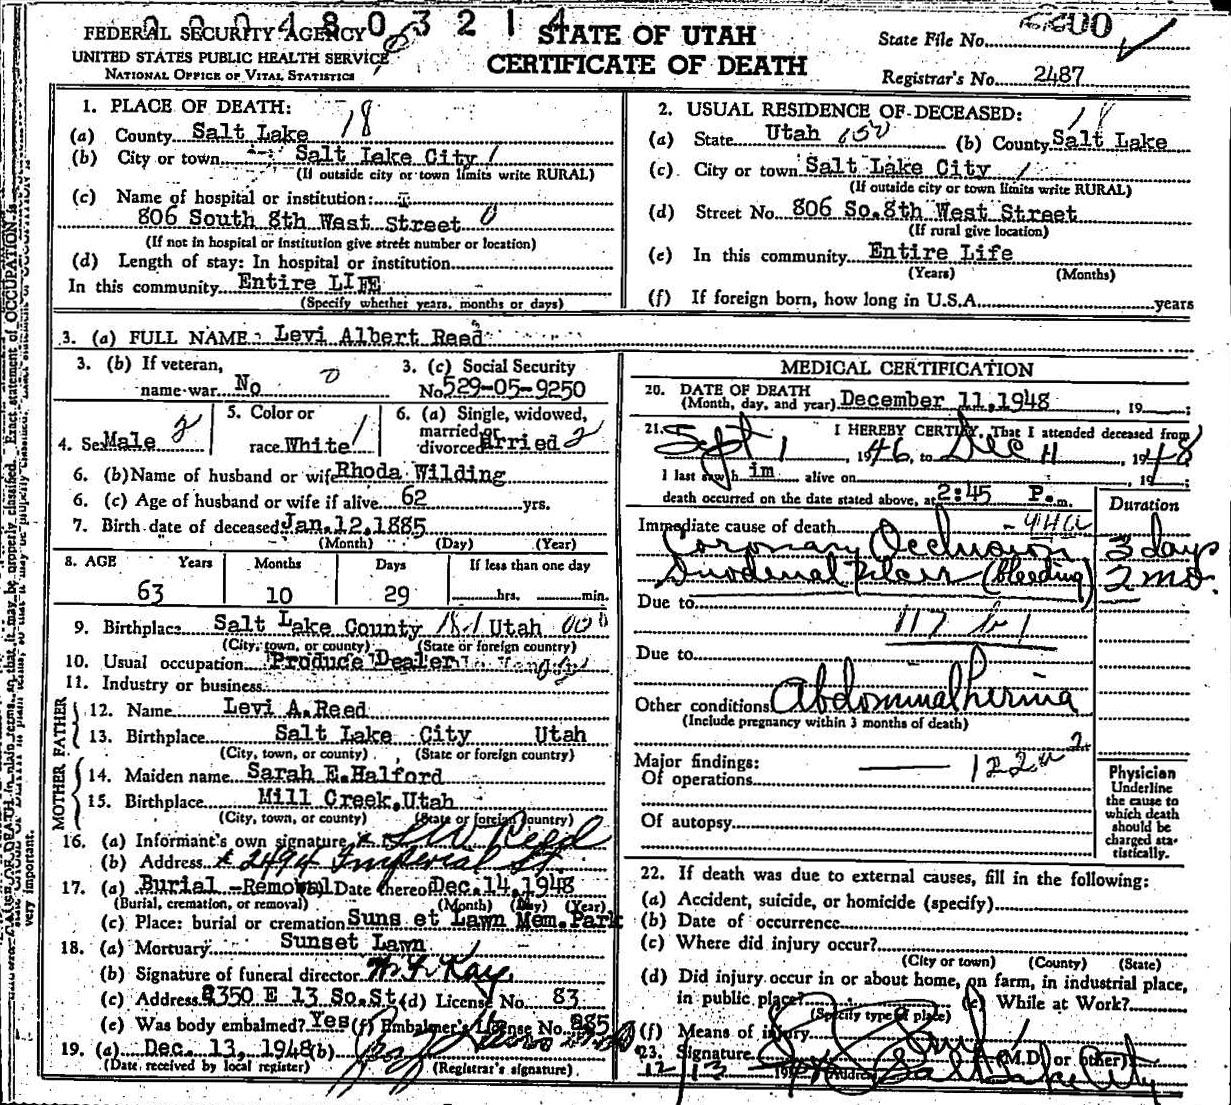 0 0 0 4 8 0 3 2 1 4
FEDERAL SECURITY AGENCY
UNITED STATES PUBLIC HEALTH SERVICE
NATIONAL OFFICE OF VITAL STATISTICS
STATE OF UTAH
CERTIFICATE OF DEATH
State File No.
Registrar's No. 2487
1. PLACE OF DEATH:
(a) County Salt Lake 18
(b) City or town Salt Lake City 1
(If outside city or town limits write RURAL)
(c) Name of hospital or institution:
806 South 8th West Street 0
(If not in hospital or institution give street number or location)
(d) Length of stay: In hospital or institution
In this community Entire LIFE
(Specify whether years, months or days)
2. USUAL RESIDENCE OF DECEASED: 18
(a) State Utah 150 (b) County Salt Lake
(c) City or town Salt Lake City 1
(If outside city or town limits write RURAL)
(d) Street No. 806 So. 8th West Street
(If rural give location)
(e) In this community Entire Life
(Years) (Months)
(f) If foreign born, how long in U.S.A. years
3. (a) FULL NAME: Levi Albert Reed
3. (b) If veteran,
name war No 0
3. (c) Social Security
No. 529-05-9250
4. Sex Male 2
5. Color or
race White 1
6. (a) Single, widowed,
married or
divorced arried 2
6. (b) Name of husband or wife Rhoda Wilding
6. (c) Age of husband or wife if alive 62 yrs.
7. Birth date of deceased: Jan. 12, 1885
(Month) (Day) (Year)
8. AGE Years Months Days If less than one day
63 10 29 hrs. min.
9. Birthplace Salt Lake County Utah
(City, town, or county) (State or foreign country)
10. Usual occupation Produce Dealer
11. Industry or business
FATHER
12. Name Levi A. Reed
13. Birthplace Salt Lake City Utah
(City, town, or county) (State or foreign country)
MOTHER
14. Maiden name Sarah E. Halford
15. Birthplace Mill Creek, Utah
(City, town, or county) (State or foreign country)
16. (a) Informant's own signature x L W Reed
(b) Address x 2494 Imperial St
17. (a) Burial -Removal Date thereof Dec. 14, 1948
(Burial, cremation, or removal) (Month) (Day) (Year)
(c) Place: burial or cremation Suns et Lawn Mem. Park
18. (a) Mortuary Sunset Lawn
(b) Signature of funeral director
(c) Address 2350 E 13 So. St. (d) License No. 83
(e) Was body embalmed? Yes (f) Embalmer's License No. 885
19. (a) Dec. 13, 1948 (b)
(Date received by local register) (Registrar's signature)
MEDICAL CERTIFICATION
20. DATE OF DEATH
(Month, day, and year) December 11, 1948, 19 ;
21. I HEREBY CERTIFY, That I attended deceased from
Sept 1, 1946, to Dec 11, 1948
I last saw h im alive on , 19 ;
death occurred on the date stated above, at 2:45 P. m.
Duration
Immediate cause of death
Coronary Occlusion 3 days
Duodenal Ulcer (bleeding) 2 mo.
Due to
117 b 1
Due to
Other conditions Abdominal hernia
(Include pregnancy within 3 months of death)
Major findings:
Of operations 122a 2
Of autopsy
Physician
Underline
the cause to
which death
should be
charged sta-
tistically.
22. If death was due to external causes, fill in the following:
(a) Accident, suicide, or homicide (specify)
(b) Date of occurrence
(c) Where did injury occur?
(City or town) (County) (State)
(d) Did injury occur in or about home, on farm, in industrial place,
in public place? (e) While at Work?
(Specify type of place)
(f) Means of injury
23. Signature (M.D. or other)
12/13 19 Address Salt Lake City
very important.